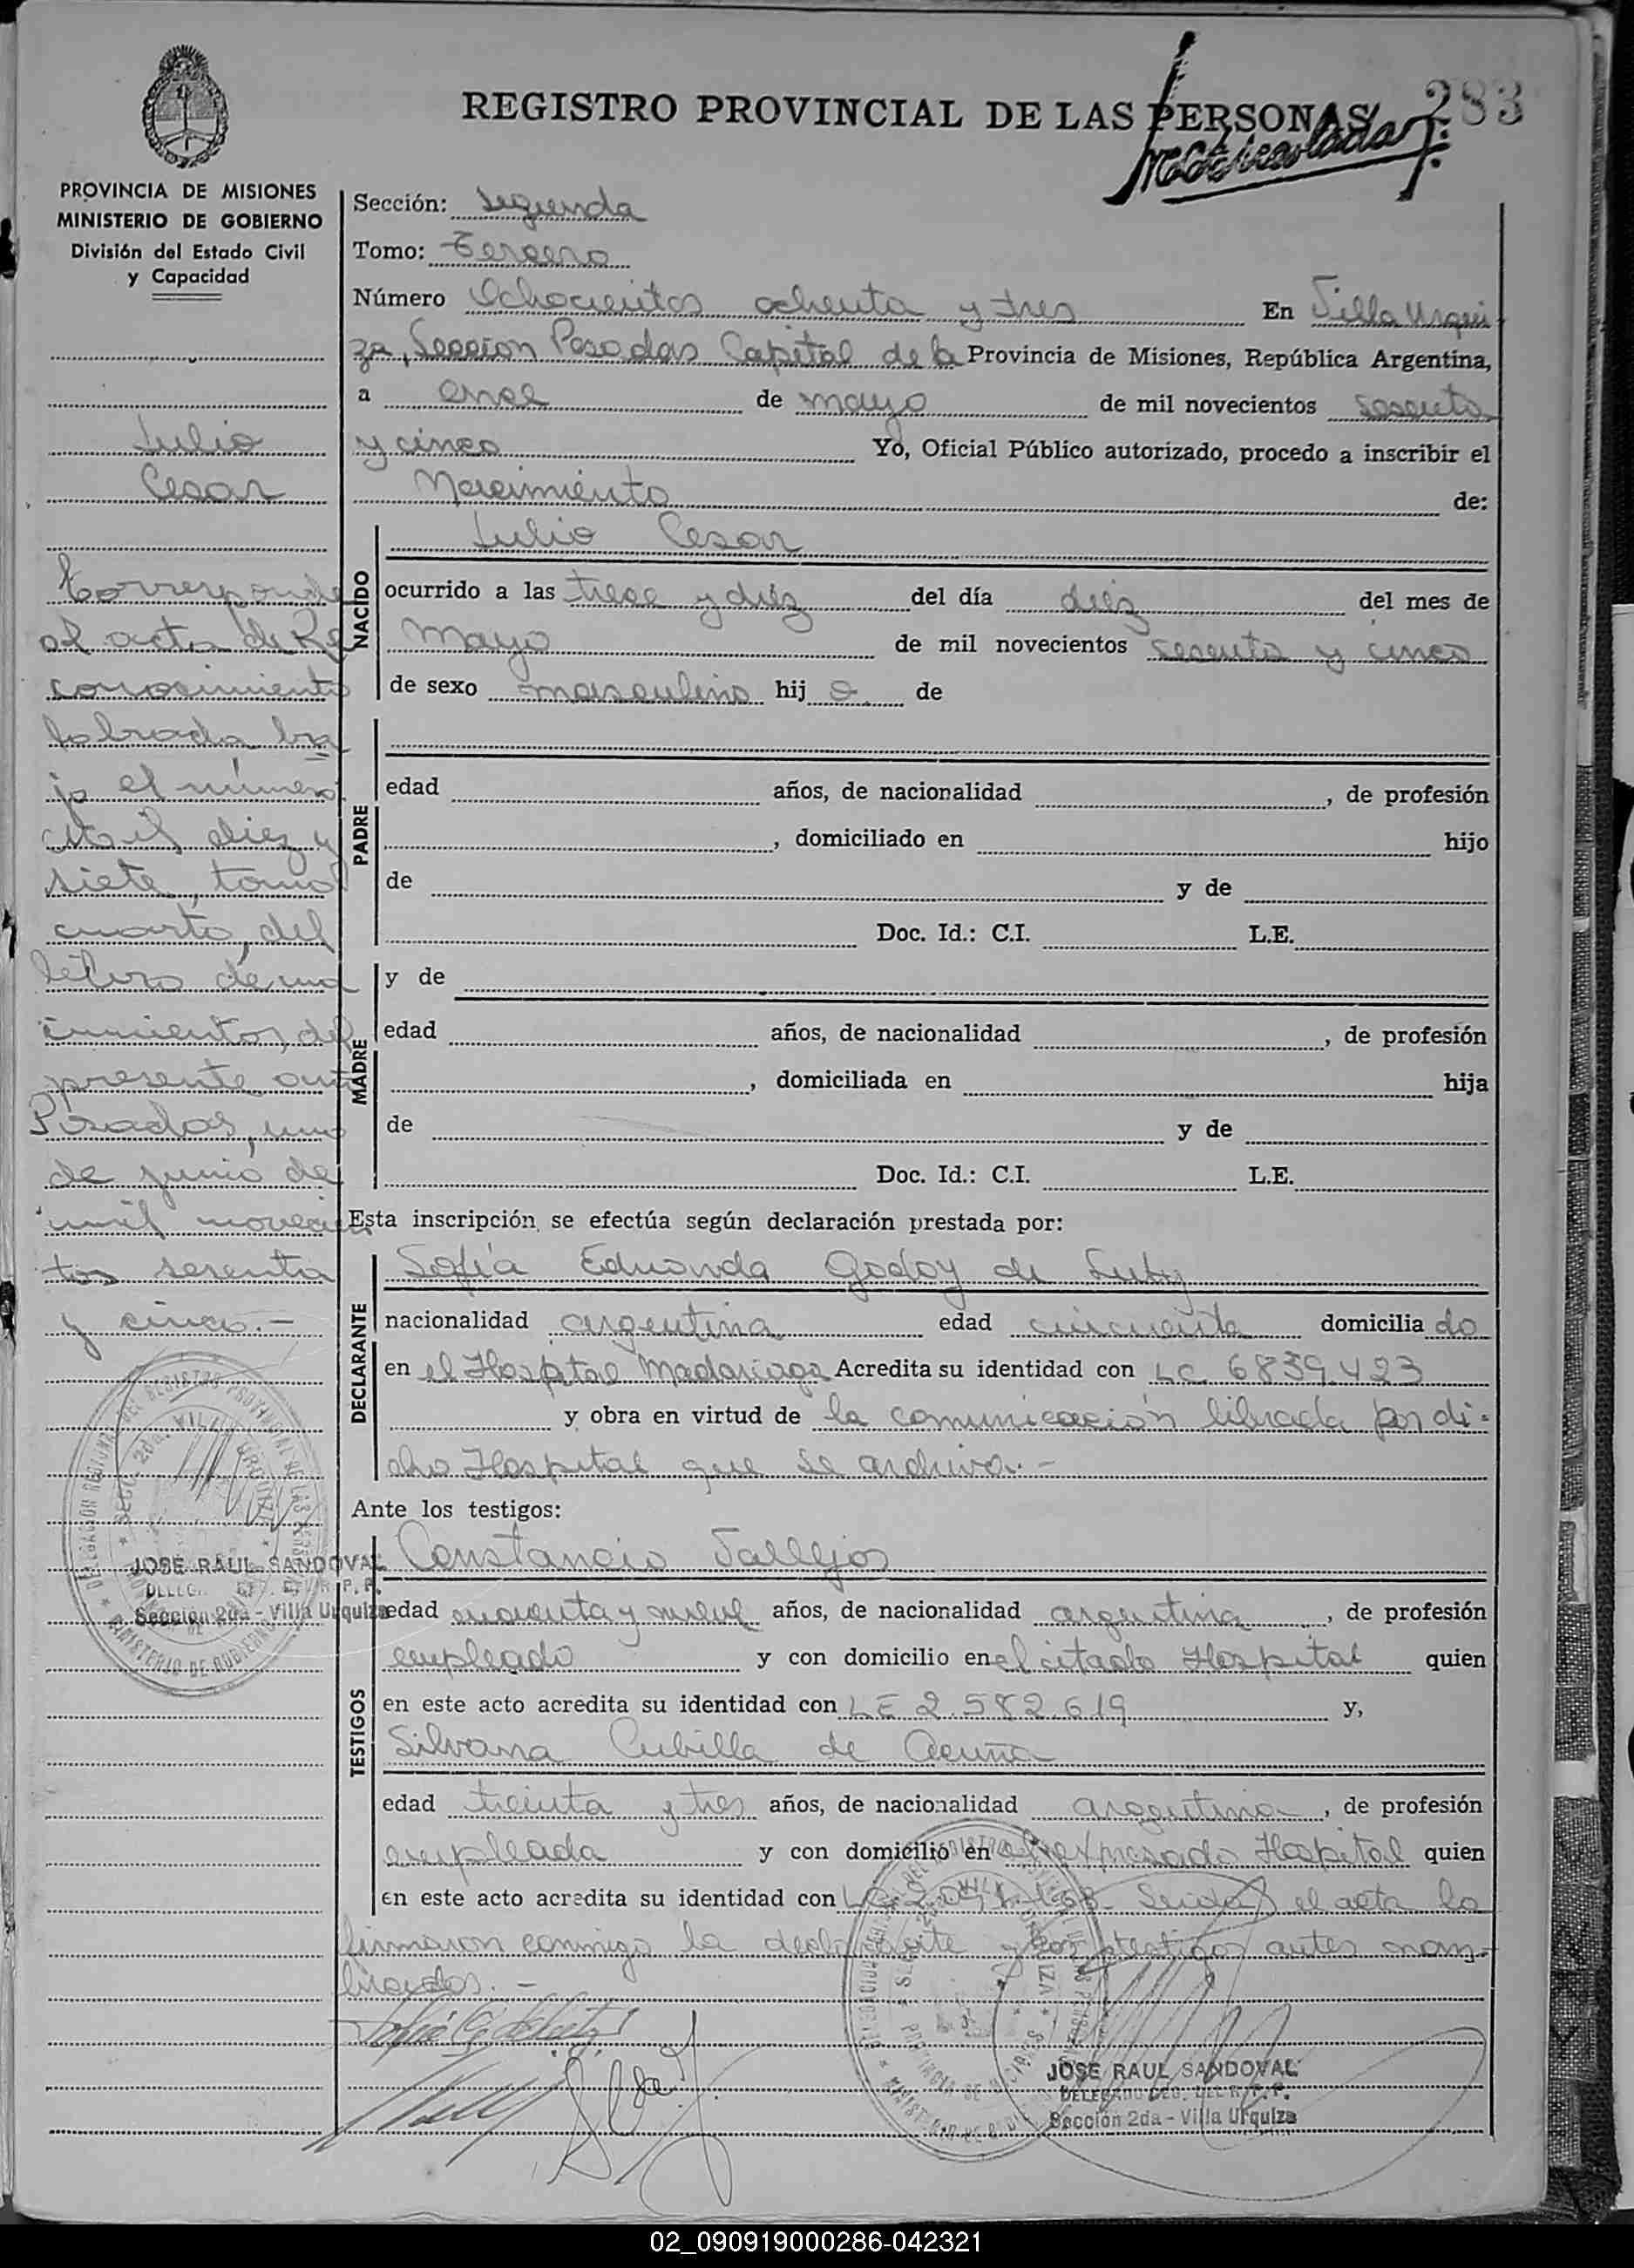 283
REGISTRO PROVINCIAL DE LAS PERSONAS
PROVINCIA DE MISIONES
MINISTERIO DE GOBIERNO
División del Estado Civil
y Capacidad
Julio
Cesar
Corresponde
al acta de Re
conocimiento
labrada ba
jo el número
mil diez y
siete, tomo
cuarto, del
libro de na
cimientos, del
presente año
Posadas, uno
de junio de
mil novecien
tos sesenta
y cinco.-
JOSE RAUL SANDOVAL
Sección 2da - Villa Urquiza
Sección: Segunda
Tomo: Tercero
Número Ochocientos ochenta y tres En Villa Urqui
za, Seccion Posadas Capital de la Provincia de Misiones, República Argentina,
a once de mayo de mil novecientos sesenta
y cinco Yo, Oficial Público autorizado, procedo a inscribir el
Nacimiento de:
NACIDO
Julio Cesar
ocurrido a las trece y diez del día diez del mes de
mayo de mil novecientos sesenta y cinco
de sexo masculino hijo de
PADRE
edad años, de nacionalidad , de profesión
, domiciliado en hijo
de y de
Doc. Id.: C.I. L.E.
MADRE
y de
edad años, de nacionalidad , de profesión
, domiciliada en hija
de y de
Doc. Id.: C.I. L.E.
Esta inscripción se efectúa según declaración prestada por:
DECLARANTE
Sofía Eduarda Godoy de
nacionalidad argentina edad cincuenta domiciliado
en el Hospital Madariaga Acredita su identidad con LC 6839.423
y obra en virtud de la comunicación librada por di-
cho Hospital que se archiva.-
Ante los testigos:
TESTIGOS
Constancio Vallejos
edad cuarenta y nueve años, de nacionalidad argentina, de profesión
empleado y con domicilio en el citado Hospital quien
en este acto acredita su identidad con LE 2.582.619 y,
Silvana Cubilla de Acuña
edad treinta y tres años, de nacionalidad argentina, de profesión
empleada y con domicilio en el expresado Hospital quien
en este acto acredita su identidad con LC Leida el acta la
firmaron conmigo la declarante y los testigos antes nom-
brados.-
JOSE RAUL SANDOVAL
DELEGADO DEL R.P.P.
Sección 2da - Villa Urquiza
02_090919000286-042321